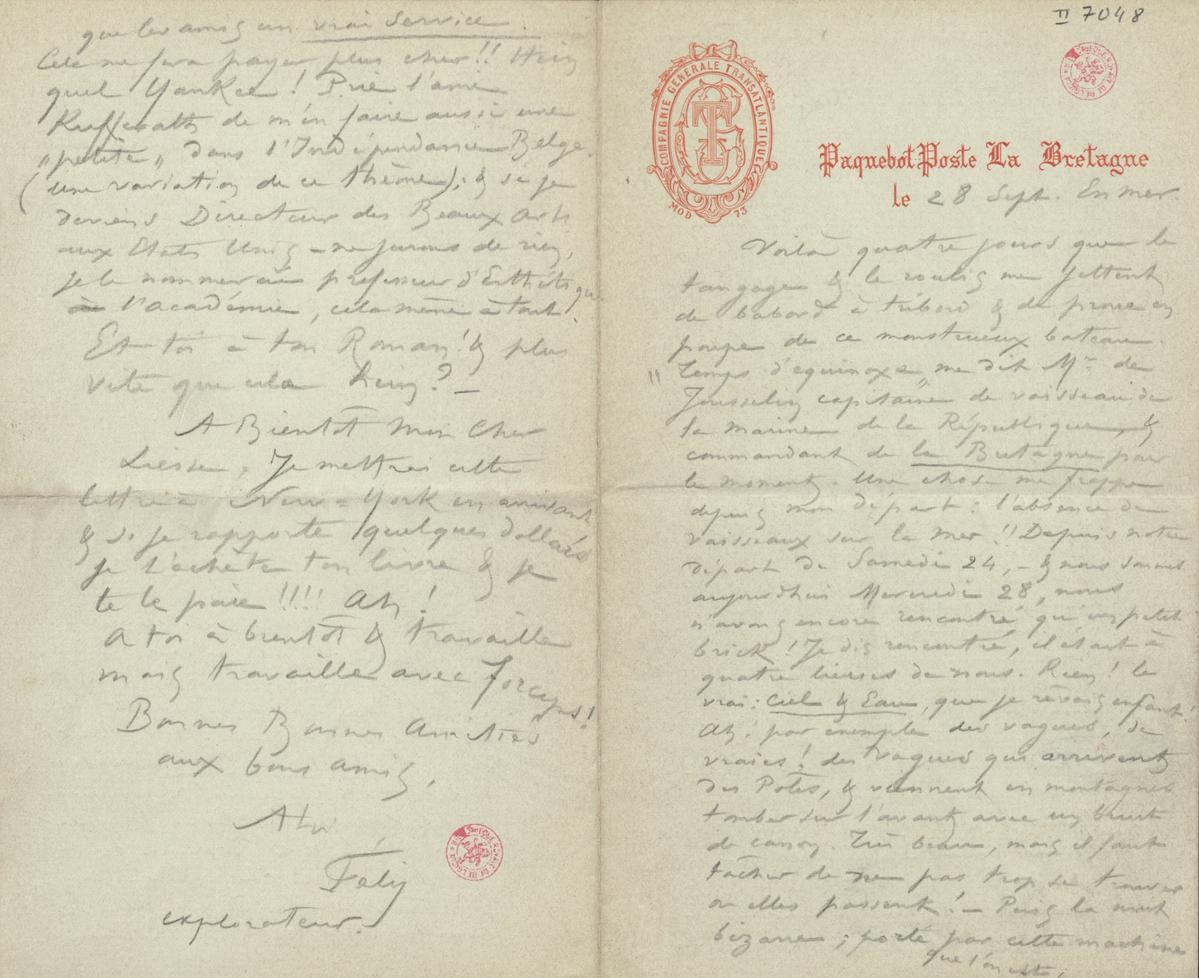 II 7048
COMPAGNIE GENERALE TRANSATLANTIQUE
MOD 73
Paquebot-Poste La Bretagne
le 28 Sept. En mer.
Voilà quatre jours que le
tangage & le roulis me jettent
de babord à tribord & de proue en
poupe de ce monstrueux bateau.
"Temps d'équinoxe" me dit Mr de
Jousselin capitaine de vaisseau de
la marine de la République, &
commandant de la Bretagne pour
le moment. Une chose me frappe
depuis mon départ : l'absence de
vaisseaux sur la mer !! Depuis notre
départ de Samedi 24, - & nous sommes
aujourdhui Mercredi 28, nous
n'avons encore rencontré qu'un petit
brick ! Je dis rencontré, il était à
quatre lieues de nous. Rien ! le
vrai : Ciel & Eau, que je rêvais enfant.
Ah ! par exemple des vagues, de
vraies ! des vagues qui arrivent
des Pôles, & viennent en montagnes
tomber sur l'avant avec un bruit
de canon. Très beau, mais il faut
tâcher de ne pas trop se trouver
où elles passent ! - Puis la nuit
bizarre ; porté par cette machine
que l'on
que les amis un vrai service.
Cela me fera payer plus cher !! Hein
quel Yankee ! Prie l'ami
Kufferath de m'en faire aussi une
"petite" dans l'Indépendance Belge.
(une variation de ce thème), & si je
deviens Directeur des Beaux Arts
aux Etats Unis - ne jurons de rien,
je le nommerai professeur d'Esthétique
à l'académie, cela mène à tout.
Et toi à ton Roman ! & plus
vite que cela hein ? -
A Bientôt mon Cher
Liesse, Je mettrai cette
lettre à New-York en arrivant
& si je rapporte quelques dollars
je t'achète ton livre & je
te le paie !!!! Ah !
A toi à bientôt & travaille
mais travaille avec forceps !
Bonnes Bonnes Amitiés
aux bons amis,
A toi
Fély
explorateur.